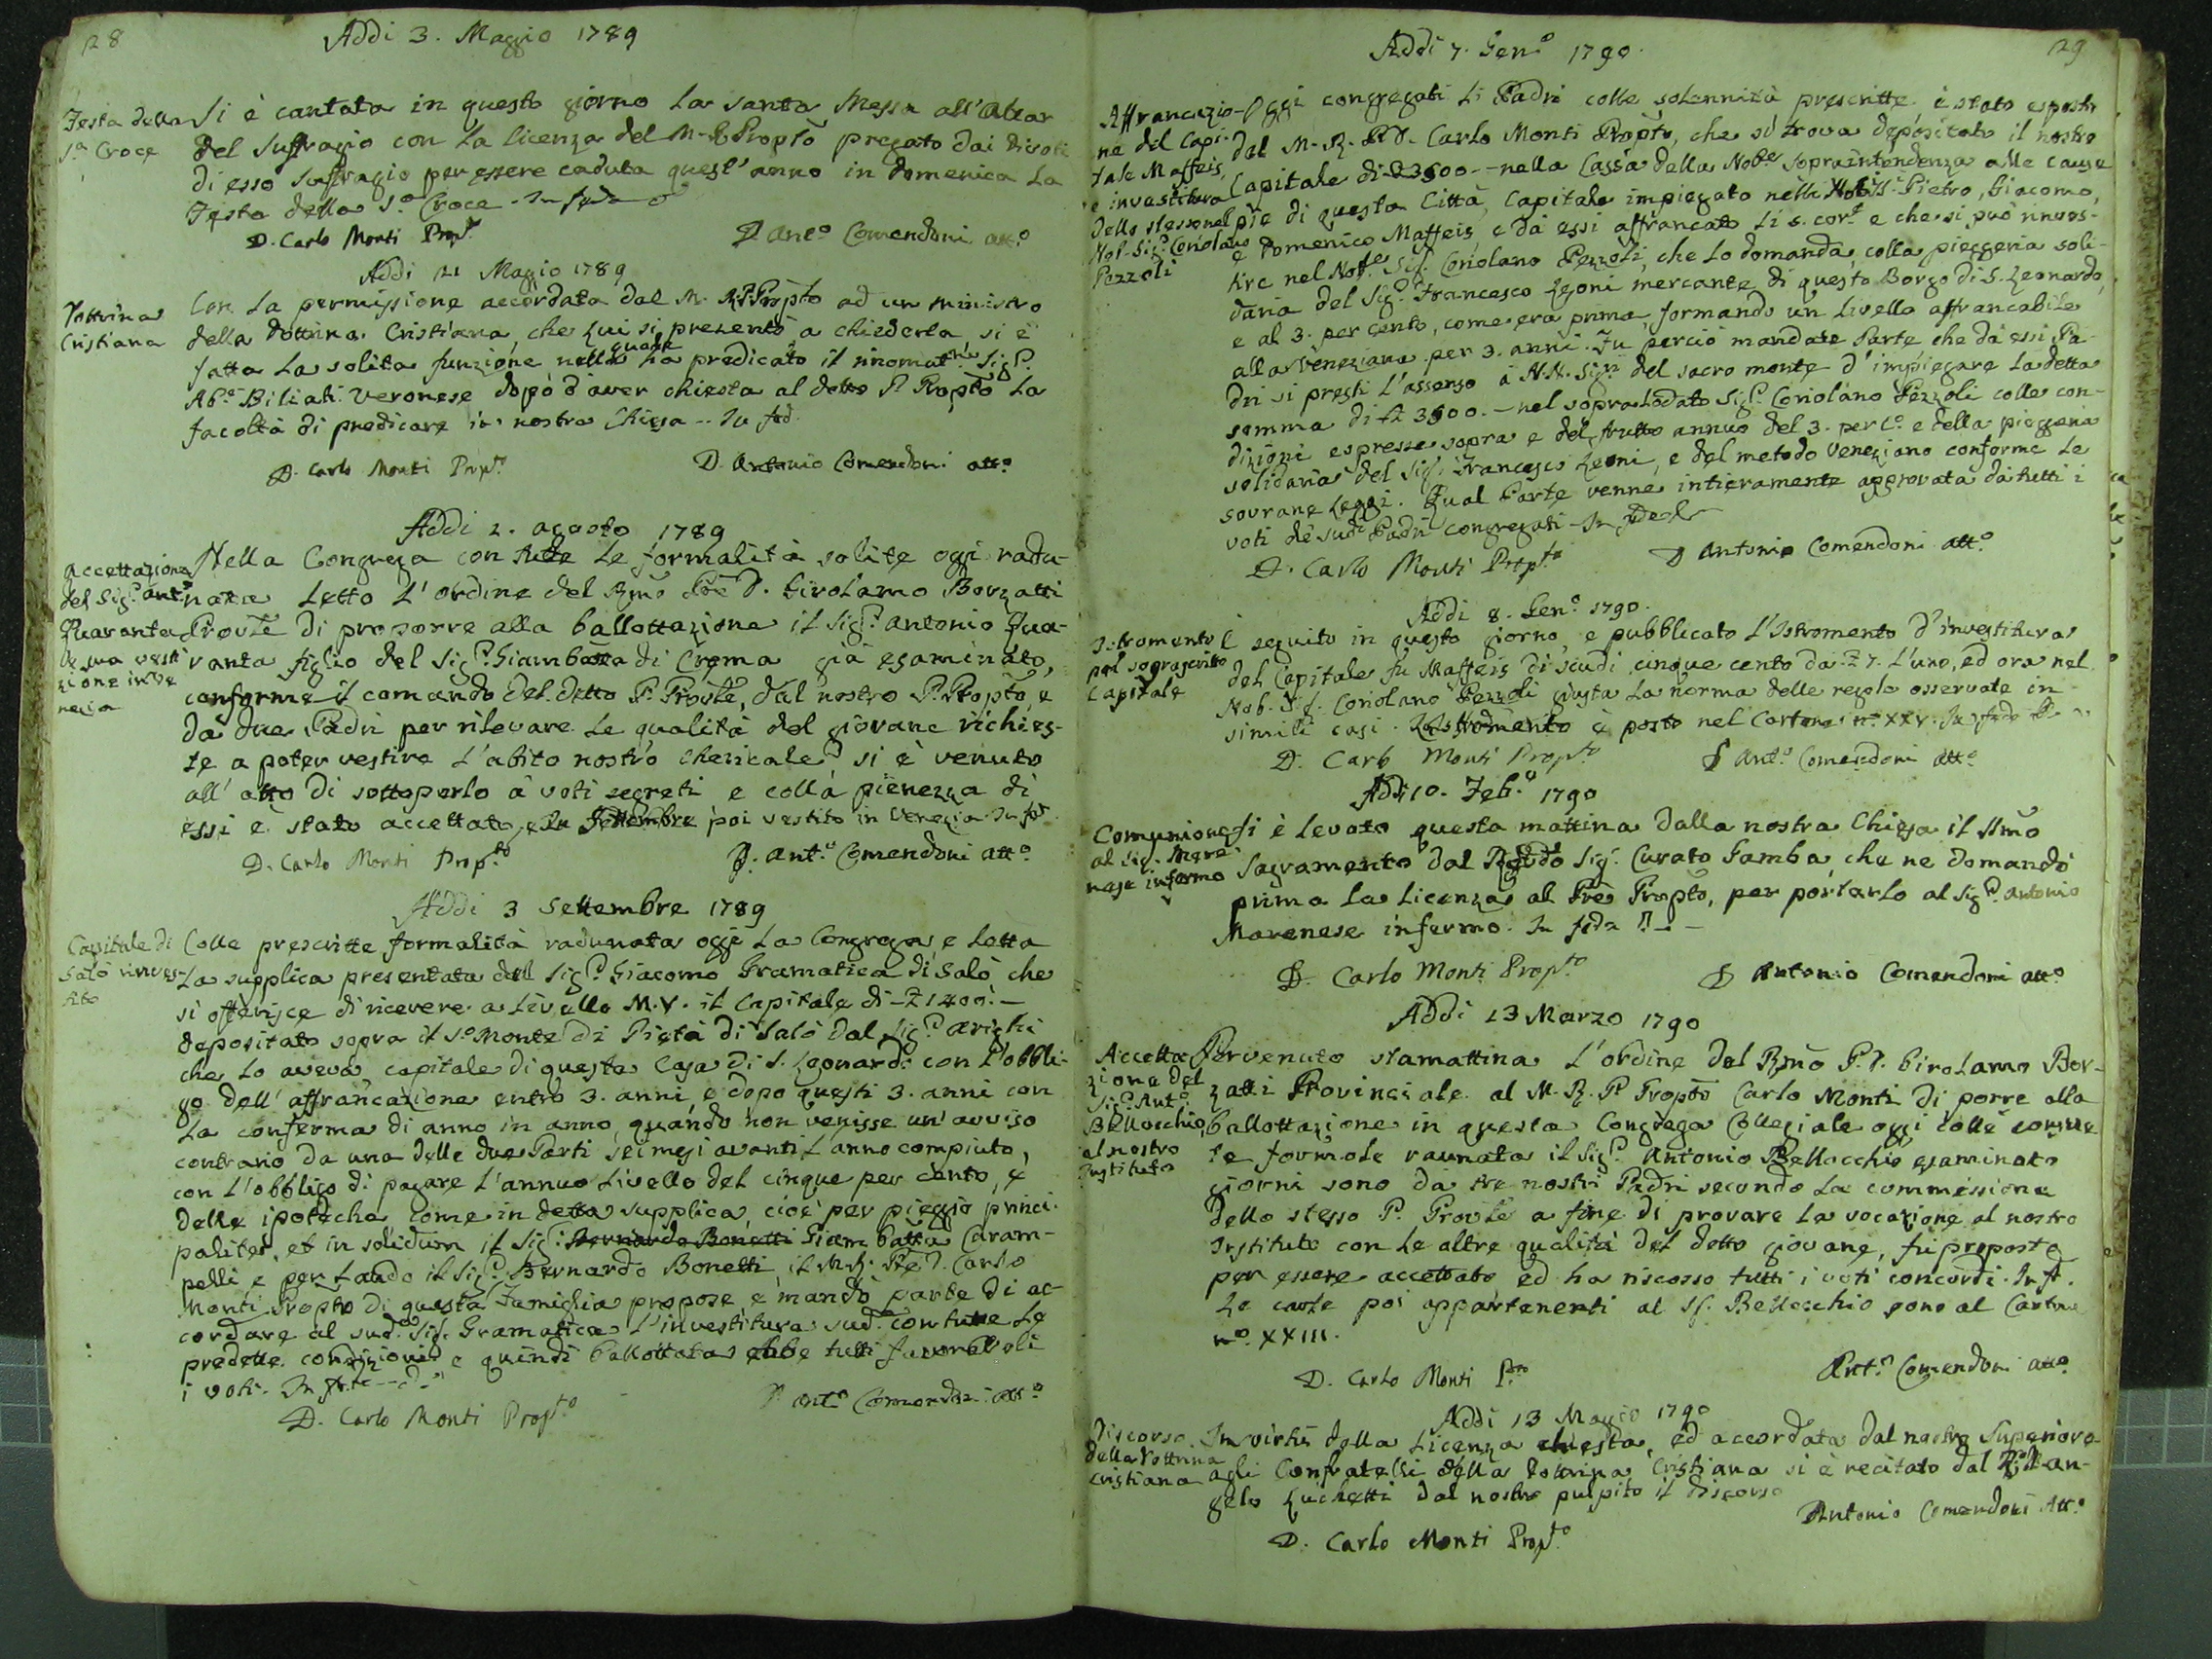 28
Addi 3. Maggio 1789
Festa della
S.a Croce
Si è cantata in questo giorno la santa Messa all'Altar
del Suffragio con la licenza del M. R. Propto pregato dai divoti
di esso suffragio per essere caduta quest'anno in domenica la
Festa della S.a Croce. In fede
D. Carlo Monti Prop.to
D Ant.o Comendoni att.o
Addi 21 Maggio 1789
Dottrina
Cristiana
Con la permissione accordata dal M. R. P. Propto ad un ministro
della dottrina Cristiana, che qui si presentò a chiederla si è
fatta la solita funzione nella quale ha predicato il rinomat.mo Sig.r
Ab.e Biliati Veronese dopo d'aver chiesta al detto P. Propto la
facoltà di predicare in nostra Chiesa -- In fed.
D. Carlo Monti Prop.to
D. Antonio Comendoni att.o
Addi 2. agosto 1789
accettazione
del Sig.r Ant.o
Quaranta
e sua vesti
zione in Ve
nezia
Nella Congrega con tutte le formalità solite oggi radu-
nata letto l'ordine del Rmo Pre D. Girolamo Borzatti
Provle di proporre alla ballottazione il Sig.r Antonio Qua-
ranta figlio del Sig.r Giambatta di Crema già esaminato,
conforme il comando del detto P. Provle, dal nostro P. Propto, e
da due Padri per rilevare le qualità del giovane richies-
te a poter vestire l'abito nostro chericale si è venuto
all'atto di sottoporlo à voti segreti e colla pienezza di
essi è stato accettato, e in Settembre poi vestito in Venezia. In fed.
D. Carlo Monti Prop.to
D. Ant.o Comendoni att.o
Addi 3 Settembre 1789
Capitale di
Salò inves-
tito
Colle prescritte formalità radunata oggi la Congrega e letta
la supplica presentata dal Sig.r Giacomo Gramatica di Salò che
si offerisce di ricevere a livello M.V. il Capitale di £ 1400: –
depositato sopra il S.o Monte di Pietà di Salò dal Sig.r Arighi
che lo aveva capitale di questa Casa di S. Leonardo con l'obbli-
go dell'affrancazione entro 3. anni, e dopo questi 3. anni con
la conferma di anno in anno, quando non venisse un avviso
contrario da una delle due Parti sei mesi avanti l'anno compiuto,
con l'obbligo di pagare l'annuo livello del cinque per cento, e
delle ipoteche come in detta supplica, cioè per pieggio princi-
paliter, et in solidum il Sig.r Bernardo Bonetti Giam batta Caram-
pelli, e per laudo il Sig.r Bernardo Bonetti, il M. R. Pre D. Carlo
Monti Propto di questa Famiglia propose, e mandò parte di ac-
cordare al sud.o Sig.r Gramatica l'investitura sud.a con tutte le
predette condizioni e quindi ballottata ebbe tutti favorevoli
i voti. In fede
D. Carlo Monti Prop.to
D Ant.o Comendoni att.o
29
Addi 7. Gen.o 1790.
Affrancazio-
ne del Capi-
tale Maffeis,
e investitura
dello stesso nel
Nob. Sig.r Coriolano
Pezzoli
Oggi congregati li Padri colle solennità prescritte, è stato esposto
dal M. R. P. D. Carlo Monti Propto, che si trova depositato il nostro
Capitale di £ 3500. – nella Cassa della Nob.e Sopraintendenza alle Cause
pie di questa Città, Capitale impiegato nelli Nob. SS.i Pietro, Giacomo,
e Domenico Maffeis, e da essi affrancato li s. cor.te e che si può inves-
tire nel Nob.e Sig.r Coriolano Pezzoli, che lo domanda colla pieggeria soli-
daria del Sig.r Francesco Leoni mercante di questo Borgo di S. Leonardo,
e al 3. per cento, come era prima, formando un livello affrancabile
alla veneziana per 3. anni. Fu perciò mandata Parte che da essi Pa-
dri si presti l'assenso a N.N. Sig.ri del sacro monte d'impiegare la detta
somma di £ 3500. – nel sopralodato Sig.r Coriolano Pezzoli colle con-
dizioni espresse sopra e del frutto annuo del 3. per c.o e della pieggeria
solidaria del Sig.r Francesco Leoni, e del metodo veneziano conforme le
sovrane leggi. Qual Parte venne intieramente approvata da tutti i
voti de sud.i Padri congregati – In fede
D. Carlo Monti Prop.to
D Antonio Comendoni att.o
Addi 8. Gen.o 1790.
Istromento
pel soprascritto
Capitale
È seguito in questo giorno, e pubblicato l'Istromento d'investitura
del Capitale fu Maffeis di scudi cinque cento da £ 7. l'uno, ed ora nel
Nob. Sig. Coriolano Pezzoli giusta la norma delle regole osservate in
simili casi. L'Istromento è posto nel Cartone n.o XXV. In fede
D. Carlo Monti Prop.to
D Ant.o Comendoni att.o
Addi 10. Feb.o 1790
Comunione
al Sig. Mare-
nese infermo
Si è levato questa mattina dalla nostra Chiesa il SSmo
Sagramento dal Revdo Sig.r Curato Gamba che ne domandò
prima la licenza al Pre Propto, per portarlo al Sig.r Antonio
Marenese infermo. In fede
D. Carlo Monti Prop.to
D Antonio Comendoni att.o
Addi 13 Marzo 1790
Accetta
zione del
Sig.r Ant.o
Bellocchio
al nostro
Instituto
Pervenuto stamattina l'ordine del Rmo P. D. Girolamo Bor-
zatti Provinciale al M. R. P Propto Carlo Monti di porre alla
ballottazione in questa Congrega Collegiale oggi colle consue
te formole raunata il Sig.r Antonio Bellocchio esaminato
giorni sono da tre nostri Padri secondo la commissione
dello stesso P. Provle a fine di provare la vocazione al nostro
Instituto con le altre qualità del detto giovane, fu proposto
per essere accettato ed ha riscosso tutti i voti concordi. In f.
Le carte poi appartenenti al Sig. Bellocchio sono al Cartone
n.o XXIII.
D. Carlo Monti P.to
Ant.o Comendoni att.o
Addi 13 Maggio 1790
Discorso
della Dottrina
Cristiana
In virtù della licenza chiesta, ed accordata dal nostro Superiore
agli Confratelli della Dottrina Cristiana si è recitato dal an-
gelo Luchetti dal nostro pulpito il discorso
D. Carlo Monti Prop.to
Antonio Comendoni Att.o